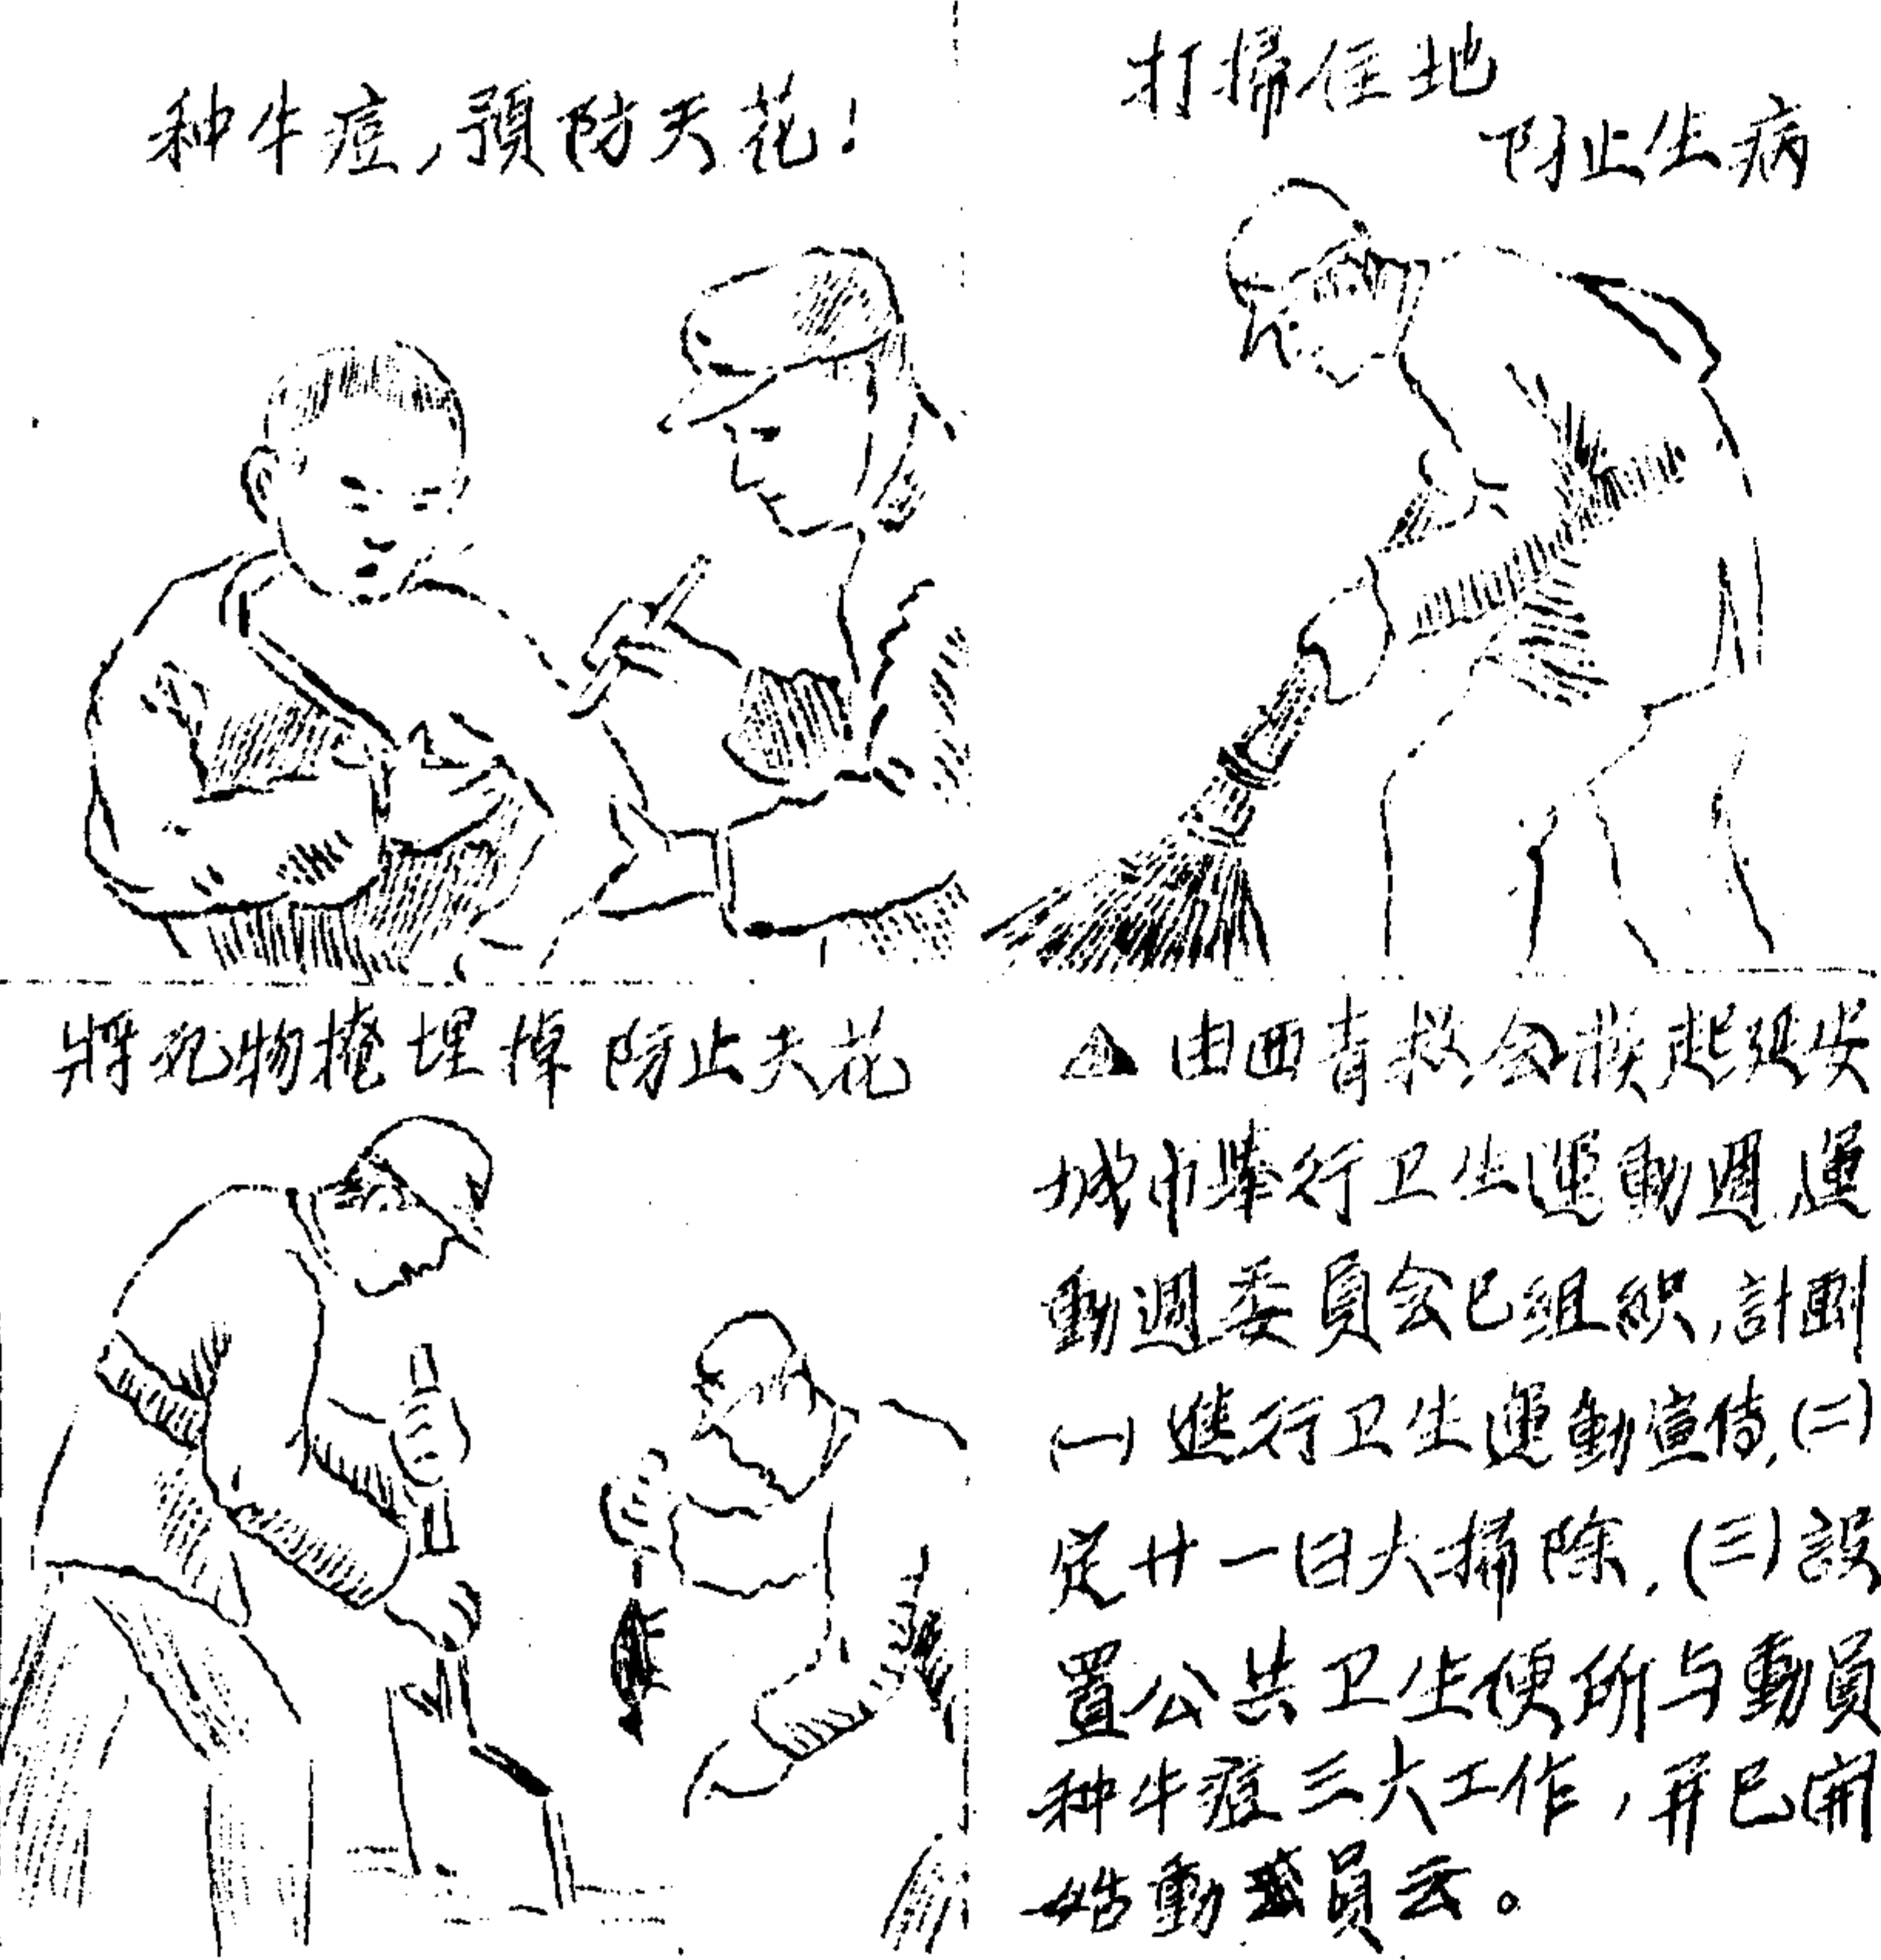 种牛痘,預防天花!
打掃住地
防止生病
將死物掩埋掉防止天花
由西青救会發起延安
城市举行卫生運動週,運
動週委員会已组织,計劃
(一)進行卫生運動宣传,(二)
定廿一日大掃除,(三)設
置公共卫生便所与動員
种牛痘三大工作,并已開
始動員云。